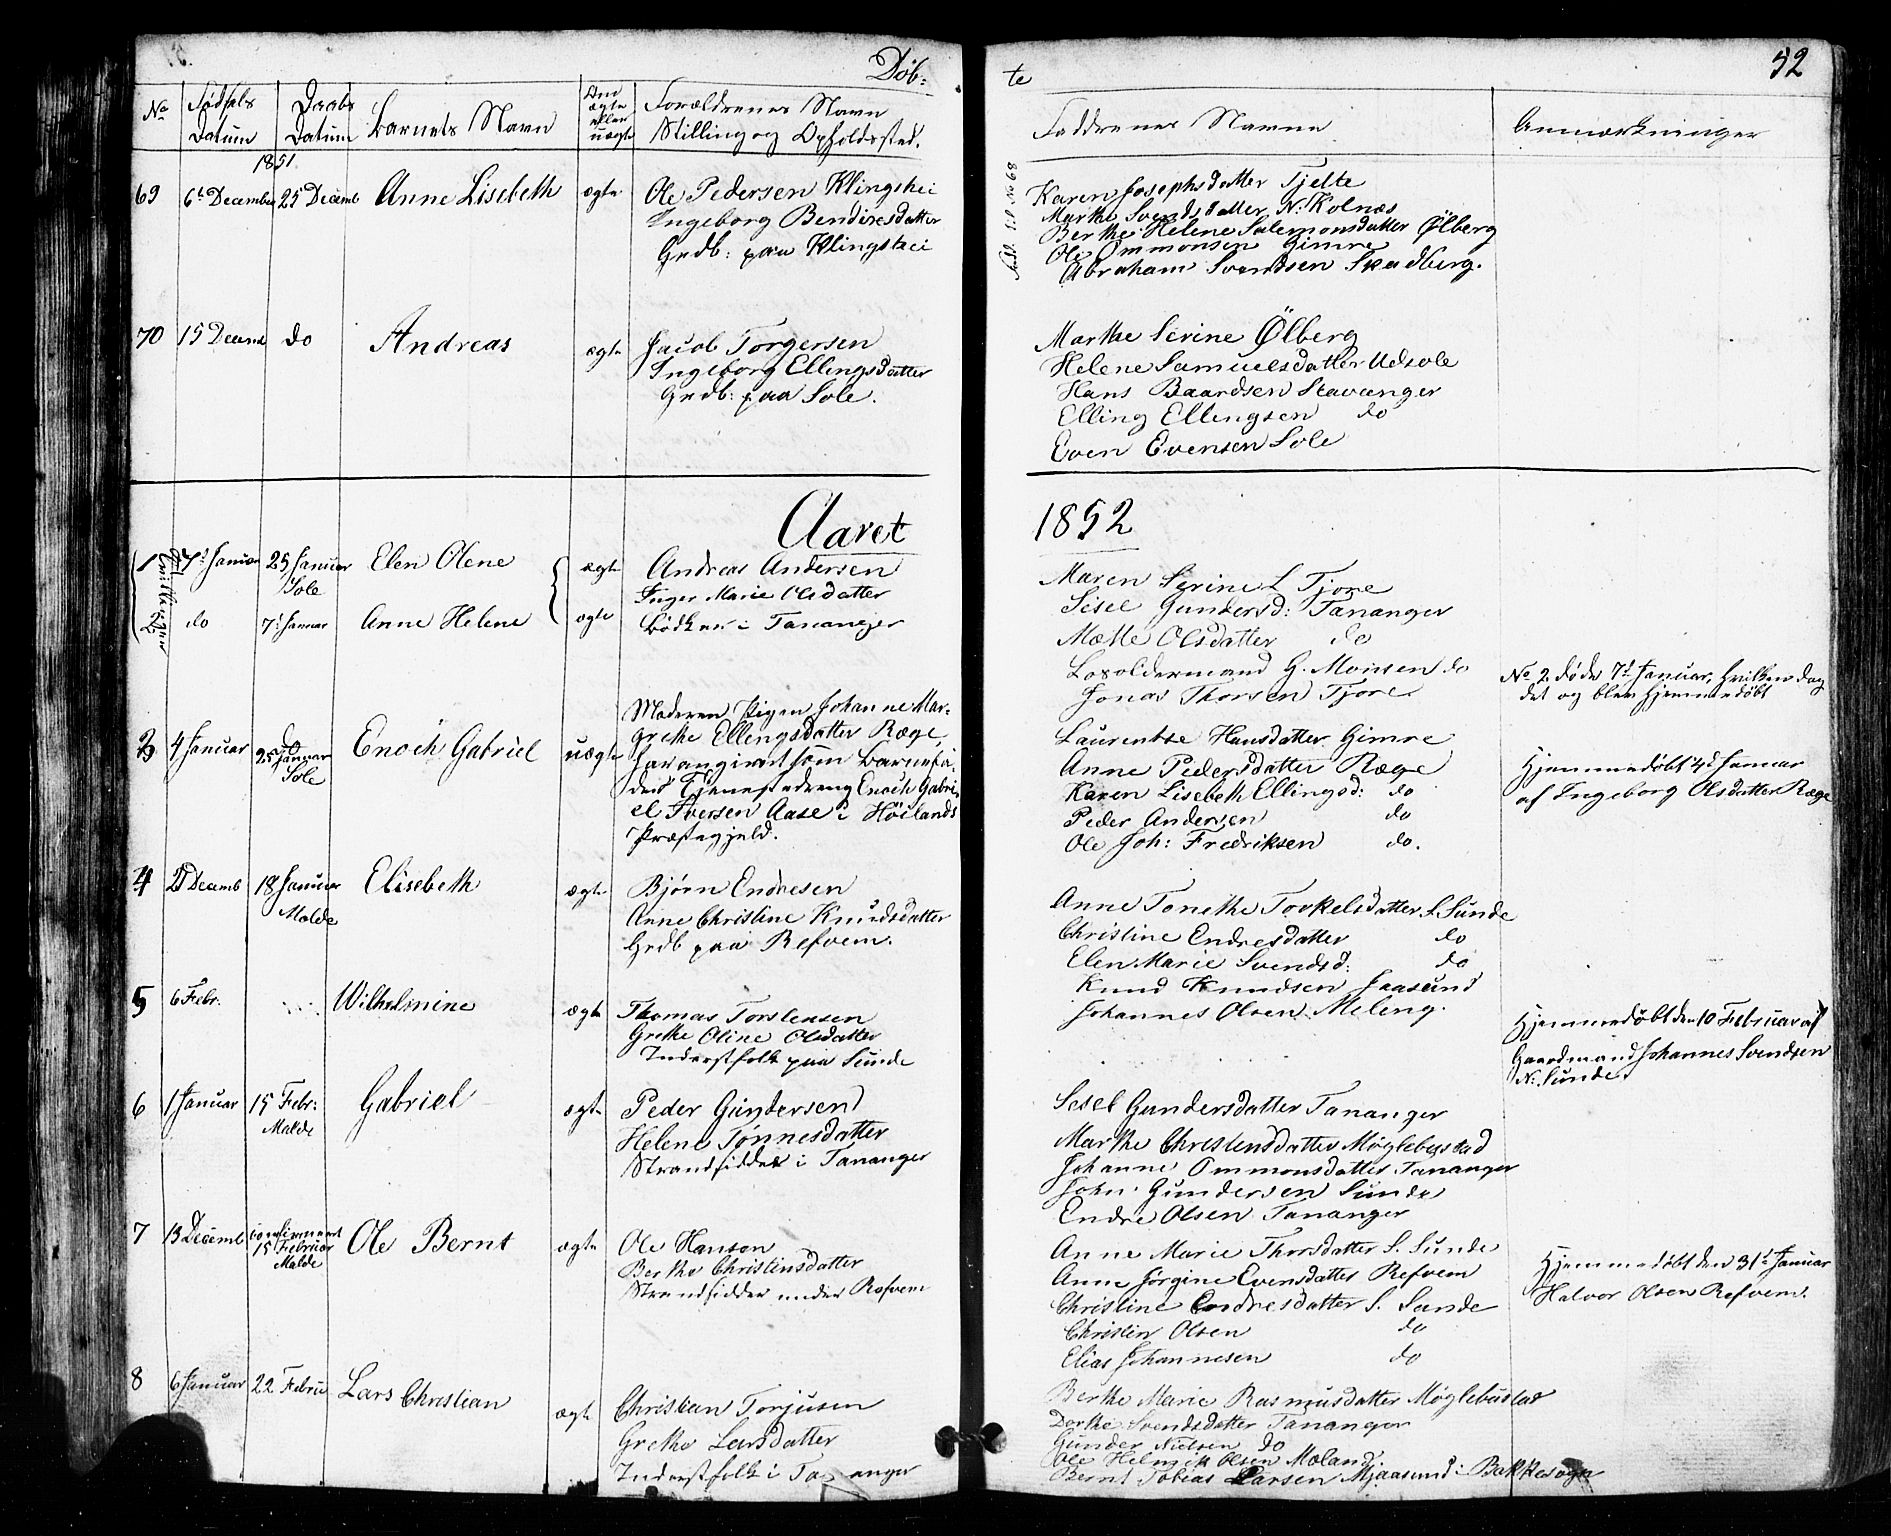 Døb:
No Fødsels Daabs Barnets Navn Om Forældrenes Navn
Datum Datum ægte eller uægte Stilling og Opholdssted.
1851
69 6t December 25 Decemb Anne Lisebeth ægte Ole Pedersen Klingshei
Ingeborg Bendixesdatter
Grdb: paa Klingshei
70 15 Decemb do Andreas ægte Jacob Torgersen
Ingeborg Ellingsdatter
Grdb: paa Sole.
Aaret
1 7d Januar 25 Januar Elen Olene ægte Andreas Andersen
Sole Inger Marie Olsdatter
2 do 7d Januar Anne Helene ægte Bødker i Tananger
Tvillinger
Moderen Pigen Johanne Mar-
3 4 Januar do Enoch Gabriel uægte grethe Ellingsdatter Ræge,
25 Januar har angivet som Barnefa-
Sole der Tjenestedreng Enoch Gabri-
el Iversen Aase i Høilands
Præstegjeld.
4 Decemb 18 Januar Elisebeth ægte Bjørn Endresen
Malde Anne Christine Knudsdatter
Grdb paa Refvem.
5 6 Febr: Wilhelmine ægte Thomas Torstensen
Grethe Oline Olsdatter
Inderstfolk paa Sunde
6 1 Januar 15 Febr: Gabriel ægte Peder Gundersen
Malde Helene Tønnesdatter
Strandsidder i Tananger
7 13 Decemb confirmeret Ole Bernt ægte Ole Hanson
15 Februar Berthe Christensdatter
Malde Strandsidder under Refvem
8 6 Januar 22 Febru Lars Christian ægte Christian Torjusen
Grethe Larsdatter
Inderstfolk i Tananger
te 52
Faddrenes Navne Anmærkninger
No 68
Karen Josephsdatter Tjelte
Marthe Svendsdatter N: Kolnæs
Berthe Helene Salemonsdatter Ølberg
Ole Ommonsen Gimre
Abraham Svendsen Skadberg.
Marthe Serine Ølberg
Helene Samuelsdatter Udsole
Hans Baardsen Stavanger
Elling Ellingsen do
Even Evensen Sole
1852
Maren Serine L Tjore
Sisel Gundersd: Tananger
Mætte Olsdatter do
Loxoldermand G. Monsen do
Jonas Thorsen Tjore
No 2. døde 7d Januar, hvilken dag
det og blev hjemmedøbt
Laurentse Hansdatter Gimre
Anne Pedersdatter Ræge
Karen Lisebeth Ellingsd: do
Peder Andersen do
Ole Joh: Fredriksen do.
Hjemmedøbt 4d Januar
af Ingeborg Olsdatter Ræge
Anne Tonethe Torkelsdatter S. Sunde
Christine Endresdatter do
Elen Marie Svendsd: do
Knud Knudsen Jaasund
Johannes Olsen Meling.
Hjemmedøbt den 10 Februar af
Gaardmand Johannes Svendsen
N. Sunde
Sesel Gundersdatter Tananger
Marthe Christensdatter Møglebustad
Johanne Ommonsdatter Tananger
John Gundersen Sunde
Endre Olsen Tananger
Anne Marie Thorsdatter S. Sunde
Anne Jørgine Evensdatter Refvem
Christine Endresdatter S. Sunde
Christen Olsen do
Elias Johannesen do
Hjemmedøbt den 31d Januar
Halvor Olsen Refvem.
Berthe Marie Rasmusdatter Møglebustad
Dorthe Svendsdatter Tananger
Gunder Nielsen do
Ole Helmik Olsen Moland.
Bernt Tobias Larsen Mjaasund i Bakkesogn